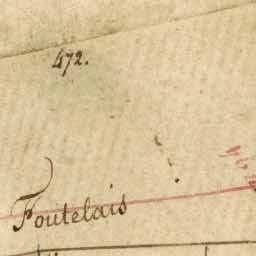 472.
Foutelais